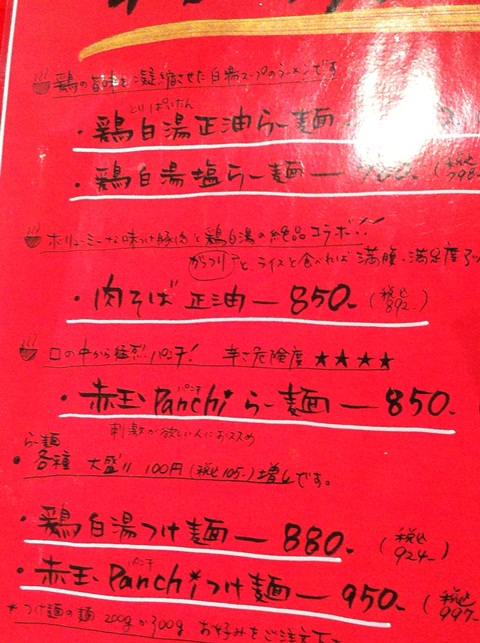 鶏の旨味を凝縮させた白湯スープのラーメンです
とりぱいたん
・鶏白湯正油らー麺
・鶏白湯塩らー麺 ー 760- (税込 798-
ボリューミーな味付け豚肉と鶏白湯の絶品コラボ!!
がっつりとライスと食べれば満腹・満足度
・肉そば 正油 ー 850- (税込 892-)
口の中から猛烈パンチ! 辛さ危険度 ★★★★
パンチ
・赤玉 Panchi らー麺 ー 850-
刺激が欲しい人におススメ
らー麺
・各種 大盛り 100円 (税込105-) 増しです。
・鶏白湯つけ麺 ー 880- (税込 924-)
パンチ
・赤玉 Panchi*つけ麺 ー 950- (税込 997-
*つけ麺の麺 200g か 300g お好みをご注文下